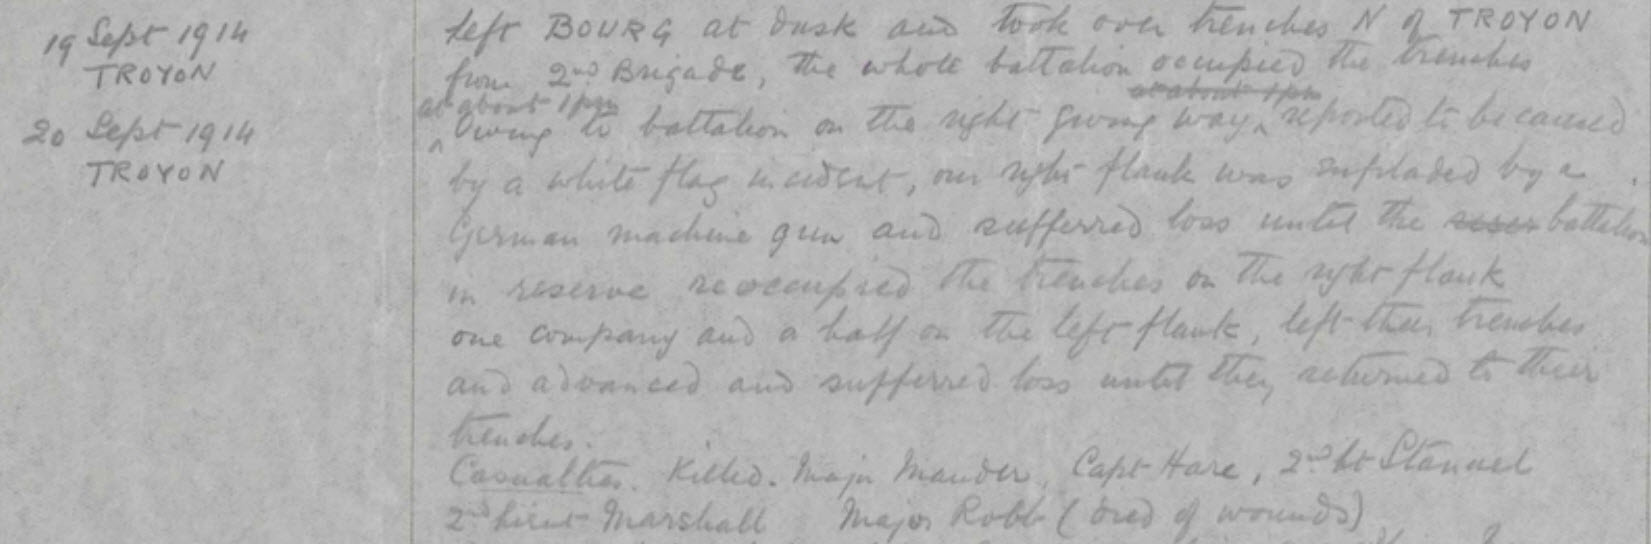 19 Sept 1914
TROYON
left BOURG at dusk and took over trenches N of TROYON
from 2nd Brigade, the whole battalion occupied the trenches
20 Sept 1914
TROYON
at about 1pm at about 1pm
Owing to battalion on the right giving way, reported to be caused
by a white flag incident, our right flank was enfiladed by a
German machine gun and sufferred loss until the battalion
in reserve reoccupied the trenches on the right flank
one company and a half on the left flank, left their trenches
and advanced and sufferred loss until they returned to their
trenches.
Casualties. Killed. Major Mander, Capt Hare, 2nd Lt Stannel
2nd Lieut Marshall Major Robb (died of wounds)